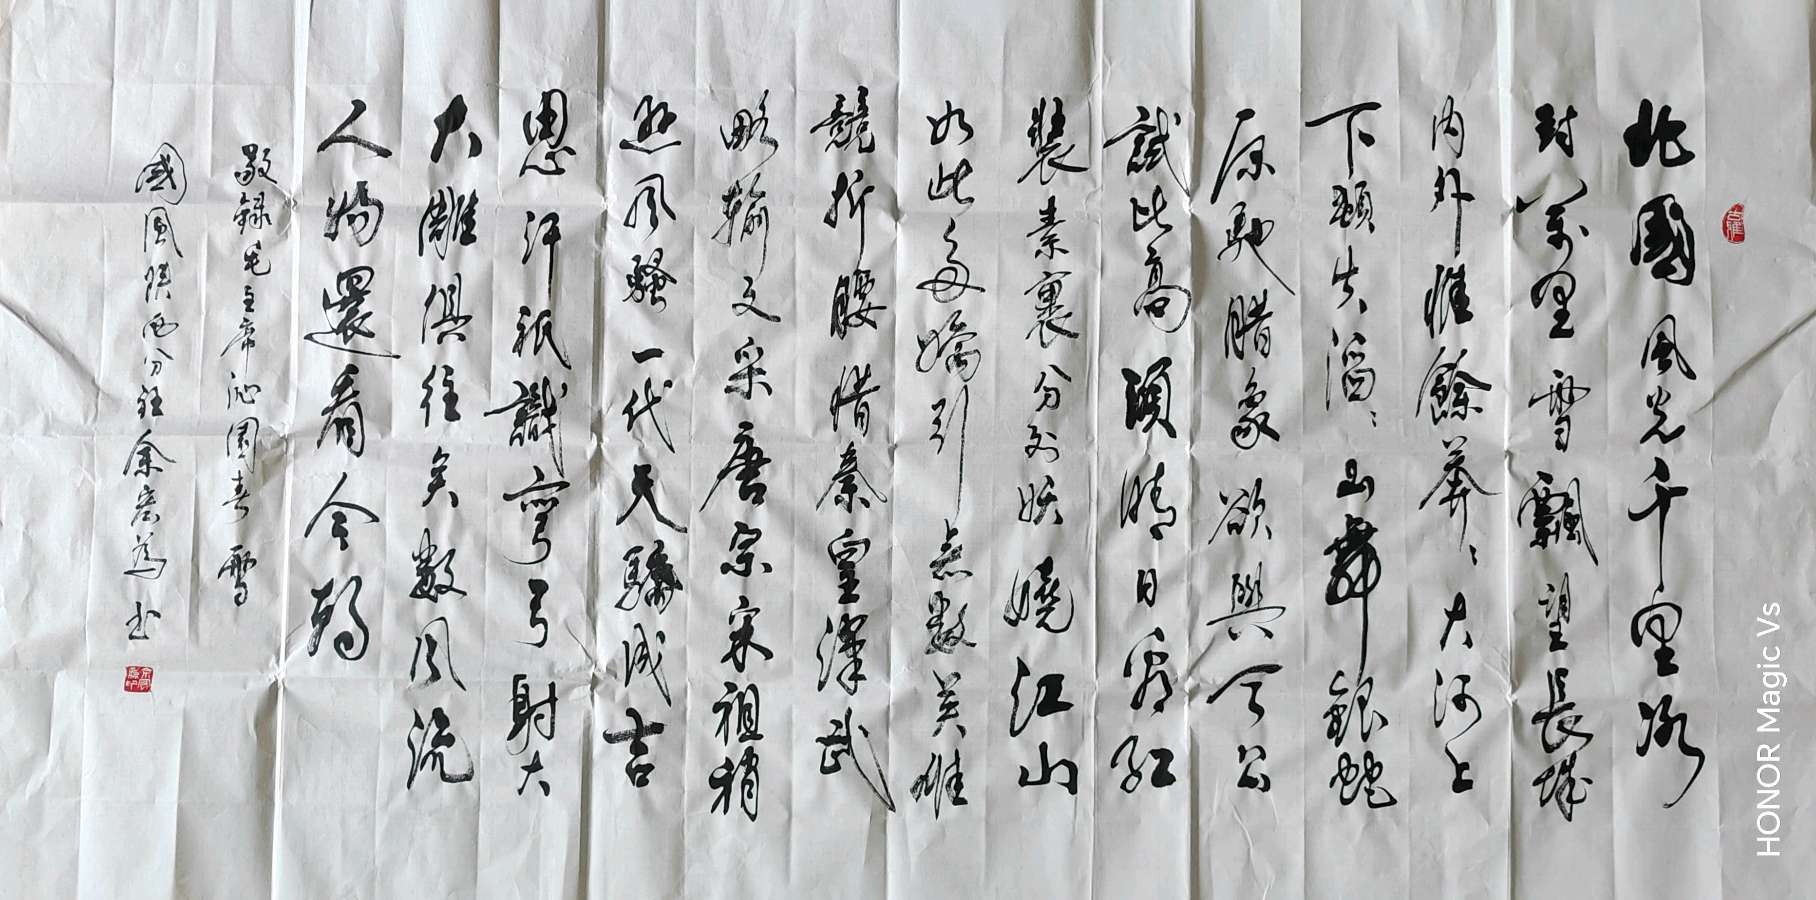 北國風光千里冰
封萬里雪飄望長城
内外惟餘莽〻大河上
下頓失滔〻山舞銀蛇
原馳腊象欲與天公
試比高須晴日看紅
裝素裹分外妖嬈江山
如此多嬌引無數英雄
競折腰惜秦皇漢武
略輸文采唐宗宋祖稍
遜風騷一代天驕成吉
思汗衹識彎弓射大
大雕俱往矣數風流
人物還看今朝
敬録毛主席沁園春雪
國風陝西分社余宏為書
HONOR Magic Vs